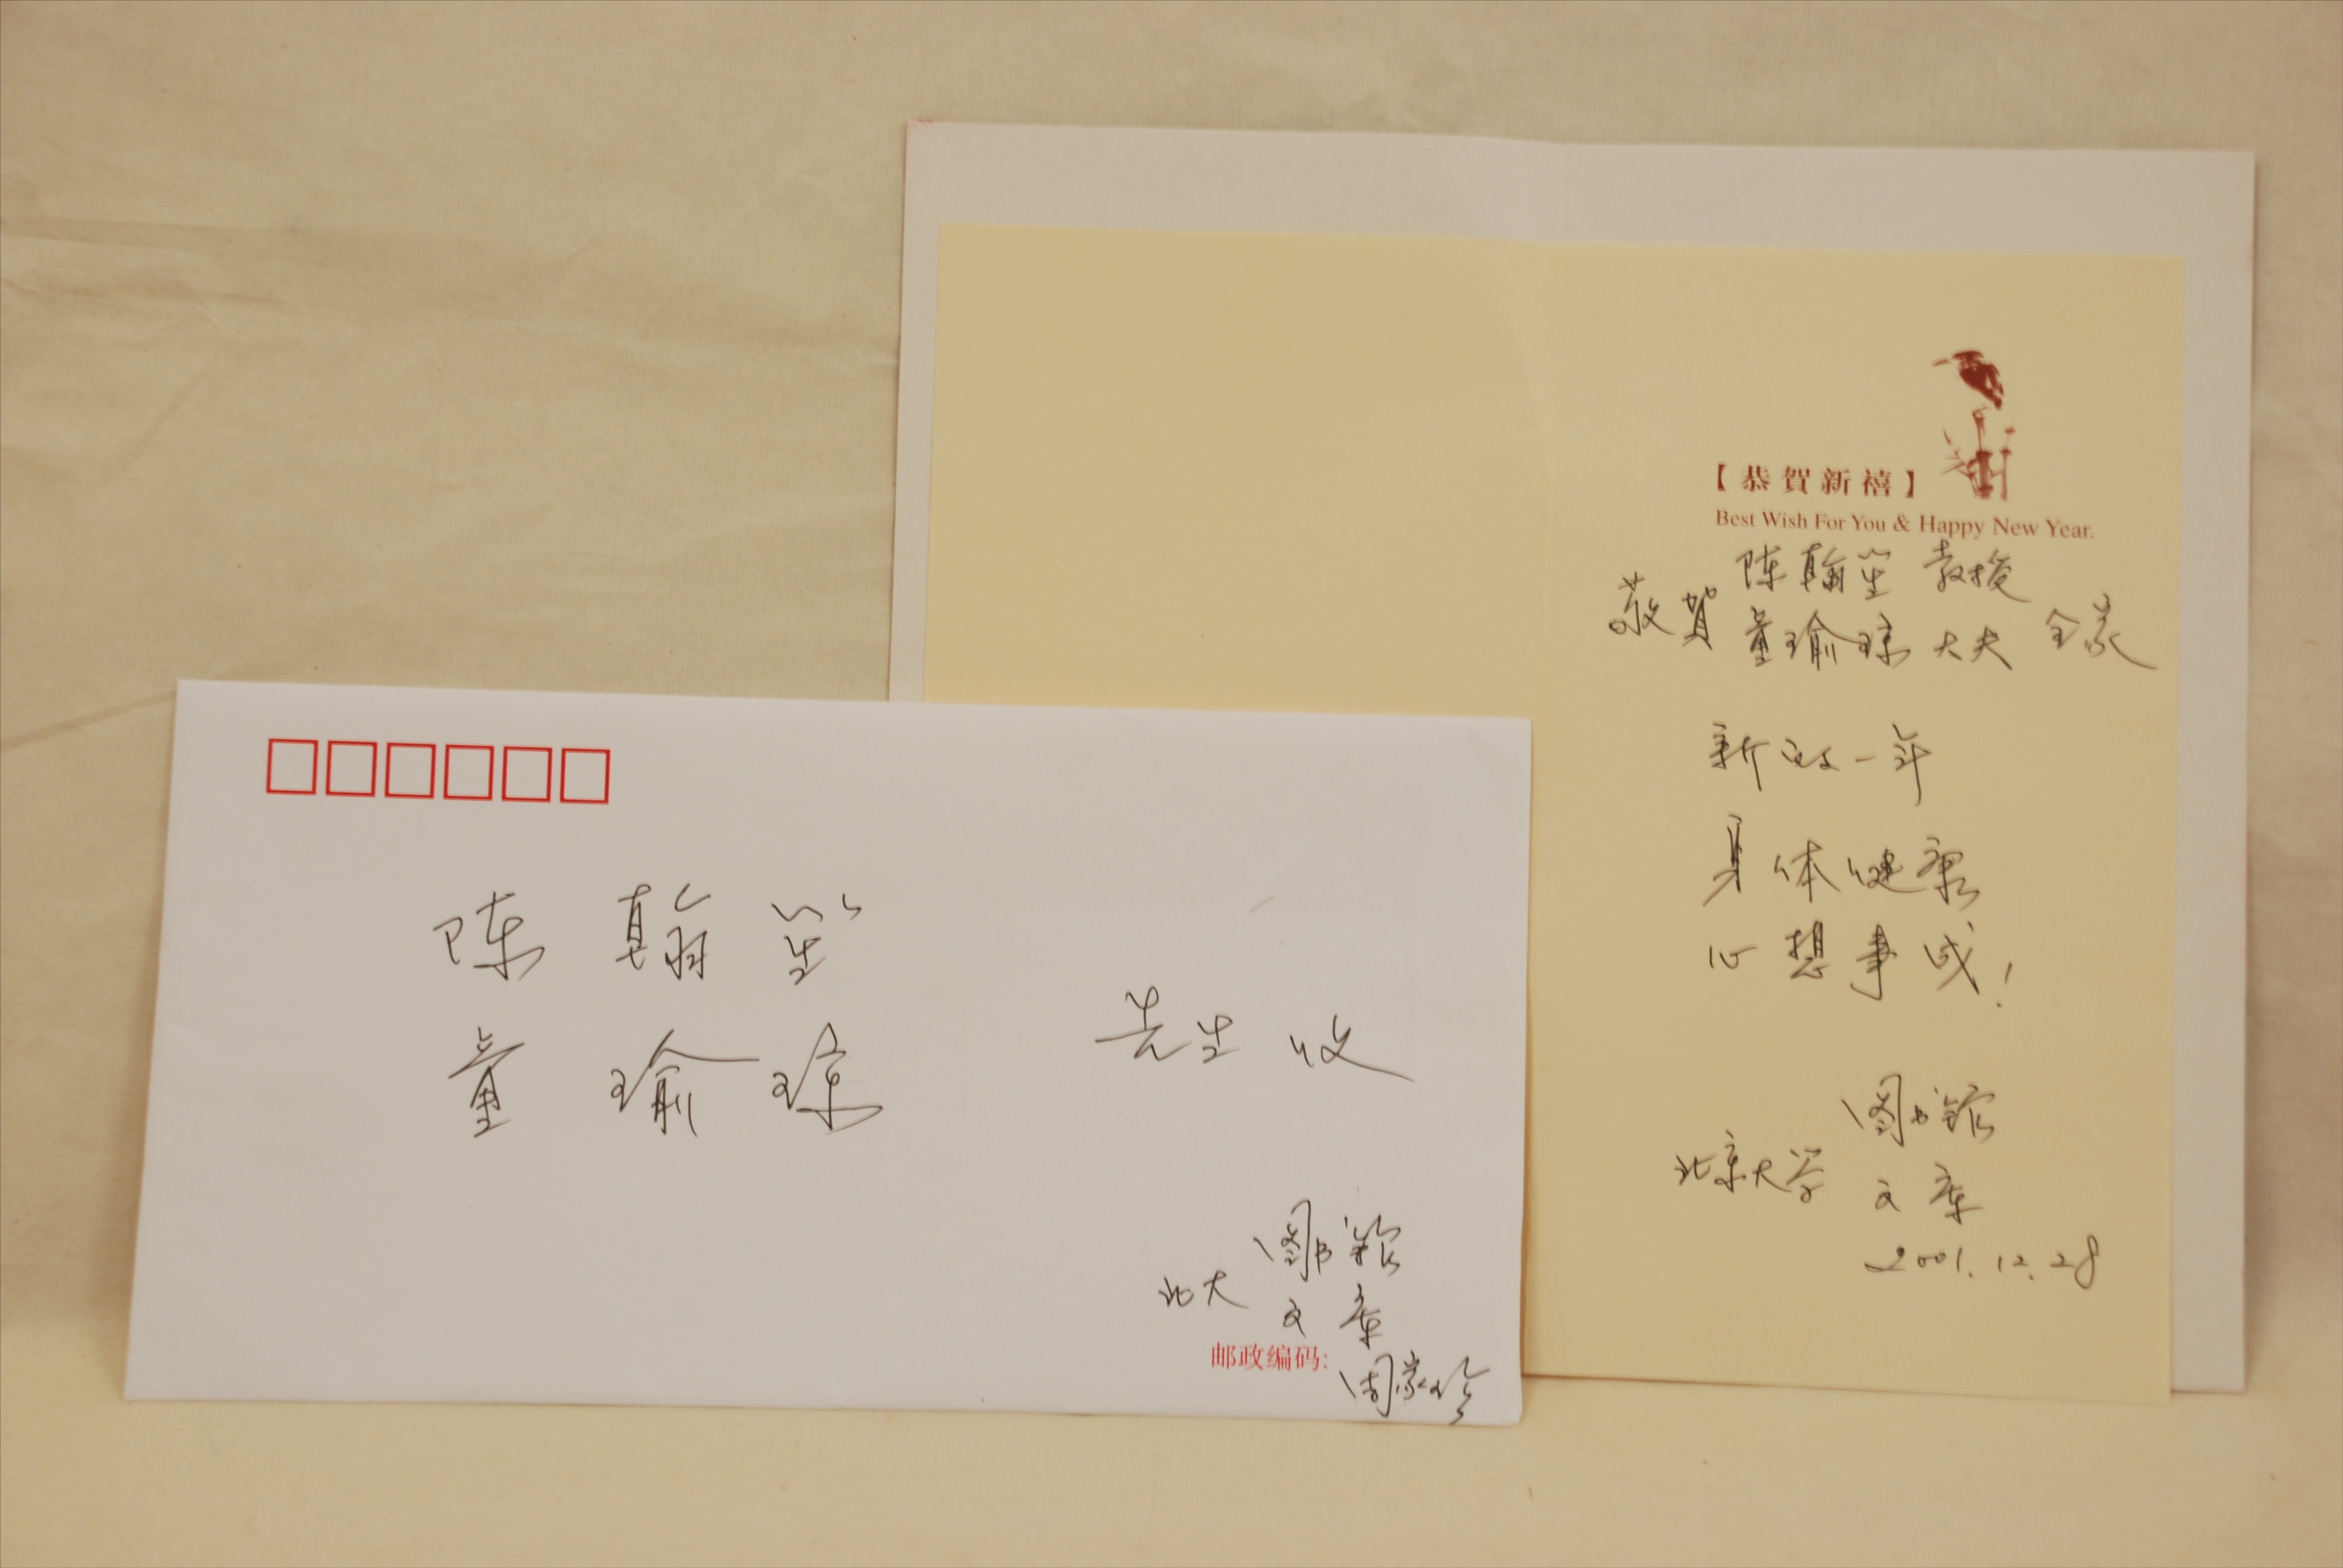 陈翰笙
童瑜琼
先生收
北大
图书馆
文库
邮政编码:
周家珍
【恭賀新禧】
Best Wish For You & Happy New Year.
敬贺
陈翰笙 教授
童瑜琼 大夫
全家
新的一年
身体健康
心想事成!
北京大学
图书馆
文库
2001.12.28